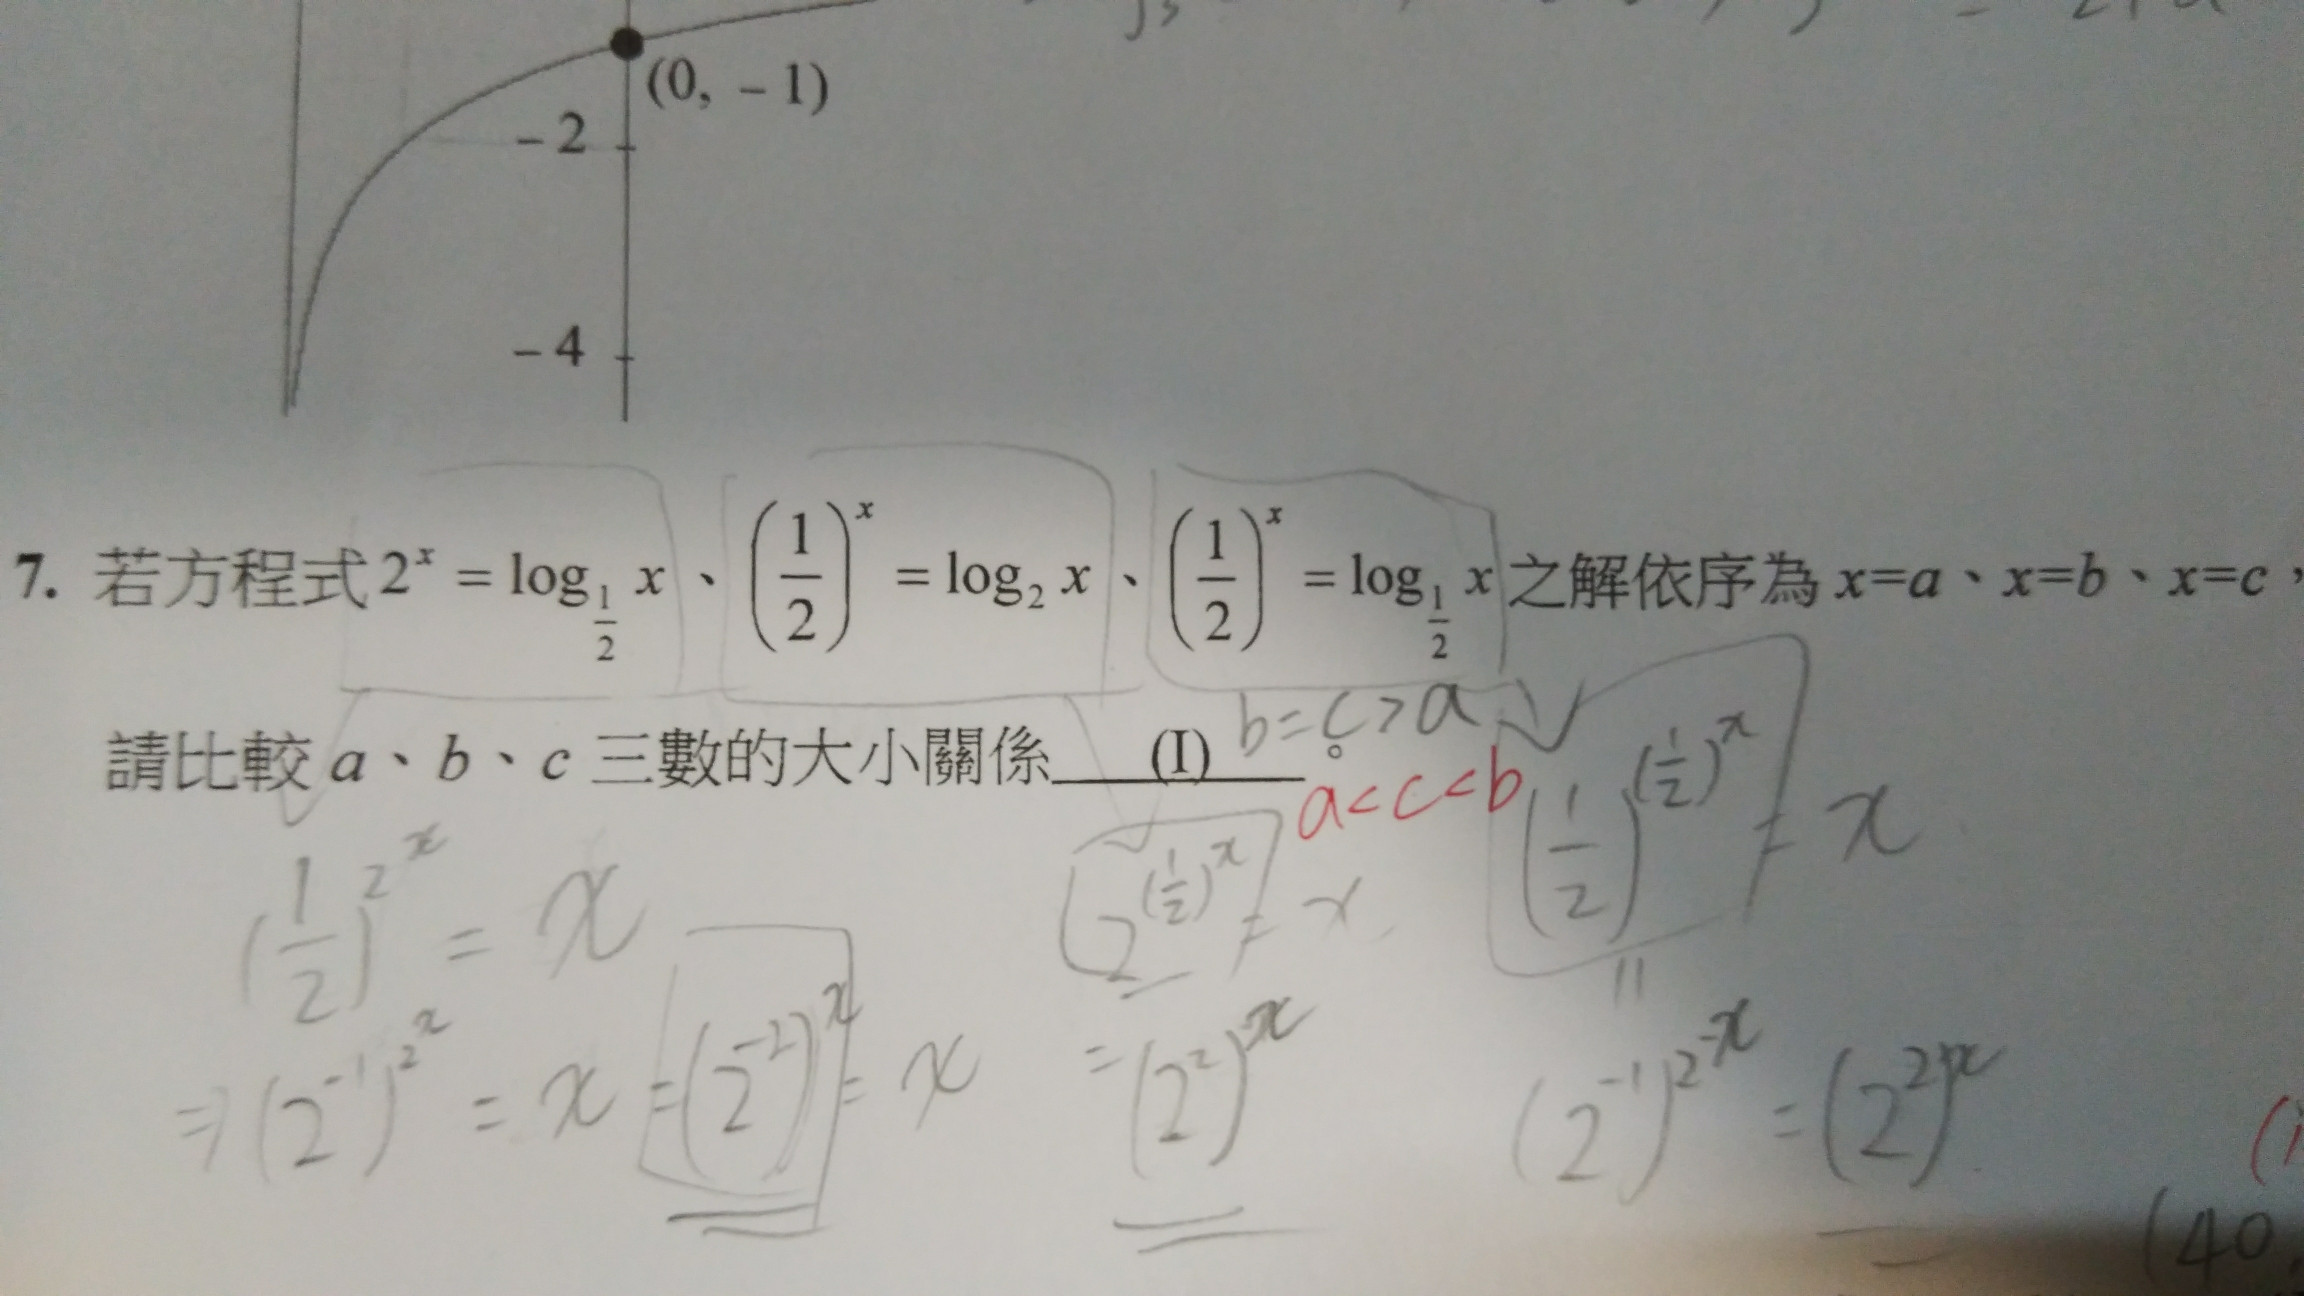 (0, －1)
－2
－4
7. 若方程式 2^x = log_{1/2} x、(1/2)^x = log_2 x、(1/2)^x = log_{1/2} x 之解依序為 x=a、x=b、x=c，
b=c>a
請比較 a、b、c 三數的大小關係 (I) 。
a<c<b
(1/2)^{2^x} = x
2^{(1/2)^x} = x
(1/2)^{(1/2)^x} = x
⇒(2^{-1})^{2^x} = x = (2^{-2})^x = x
= (2^2)^{-x}
(2^{-1})^{2^{-x}} = (2^2)^x
(40